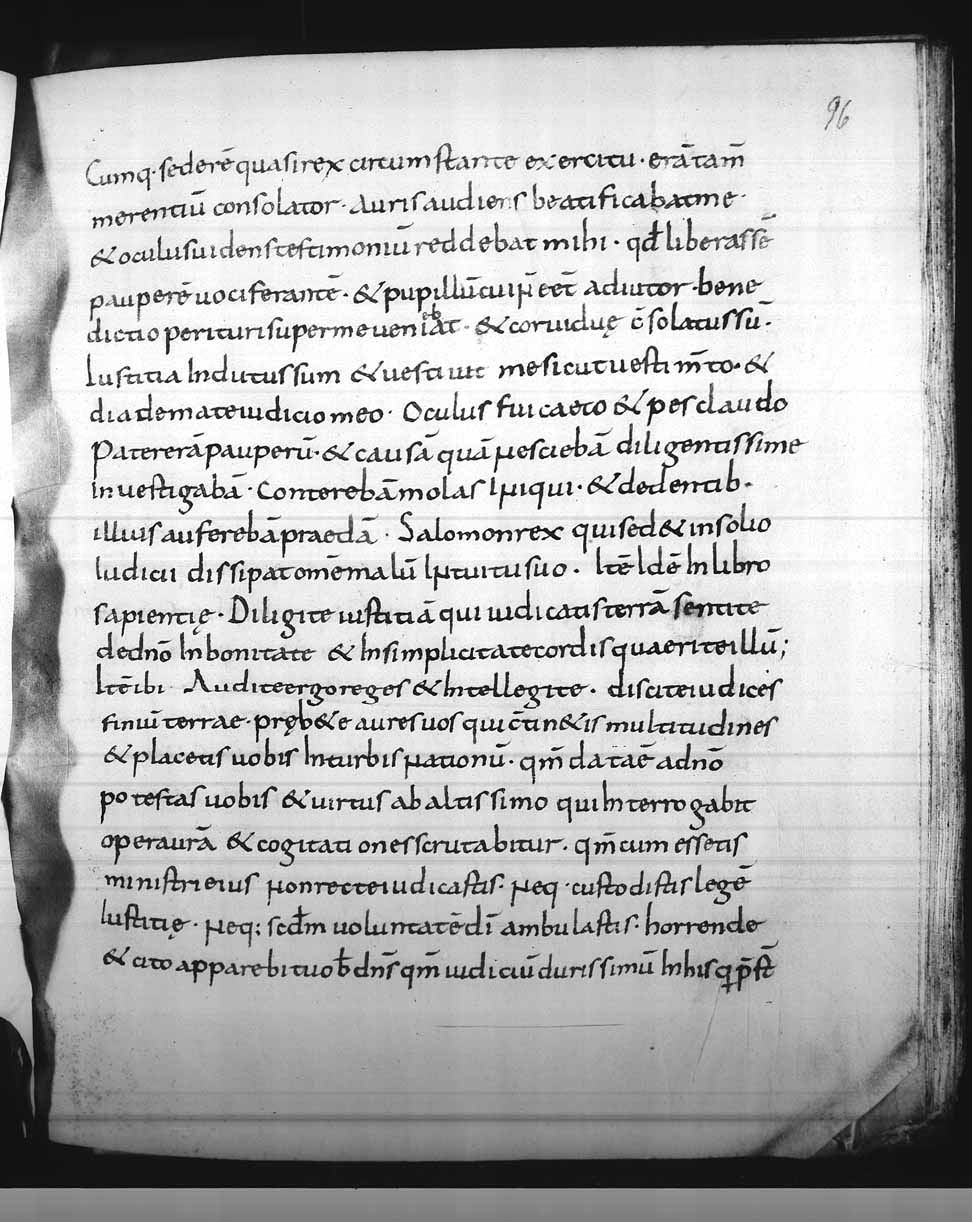 96
Cumq· sederē quasi rex circumstante exercitu· erā tam̄
merentiū consolator· Auris audiens beatificabat me·
& oculus uidens testimoniū reddebat mihi· qđ liberassē
pauperē uociferantē· & pupillū cui ñ eēt adiutor· bene
dictio perituri super me ueniebat· & cor uiduę c̄solatus sū·
Iustitia Indutus sum & uestiuit me sicut uestim̄to· &
diademate iudicio meo· Oculus fui caeco & pes claudo
Pater erā pauperū· & causā quā nesciebā diligentissime
Inuestigabā· Conterebā molas Iniqui· & dedentib·
illius auferebā praedā· Salomon rex qui sed& in solio
Iudicii dissipat omē malū Intuitu suo· Itē Idē In libro
sapientię· Diligite iustitiā qui iudicatis terrā sentite
de dn̄o In bonitate & In simplicitate cordis quaerite illū;
Itē ibi Audite ergo reges & Intellegite· discite iudices
finiū terrae· pręb&e aures uos qui c̄tin&is multitudines
& placetis uobis In turbis nationū· qm̄ data ē a dn̄o
potestas uobis & uirtus ab altissimo qui Interrogabit
opera urā & cogitationes scrutabitur· qm̄ cum essetis
ministri eius non recte iudicastis· neq· custodistis legē
Iustitię· neq; scd̄m uoluntatē dī ambulastis· horrende
& cito apparebit uob̄ dn̄s qm̄ iudiciū durissimū In his q p̄st̄